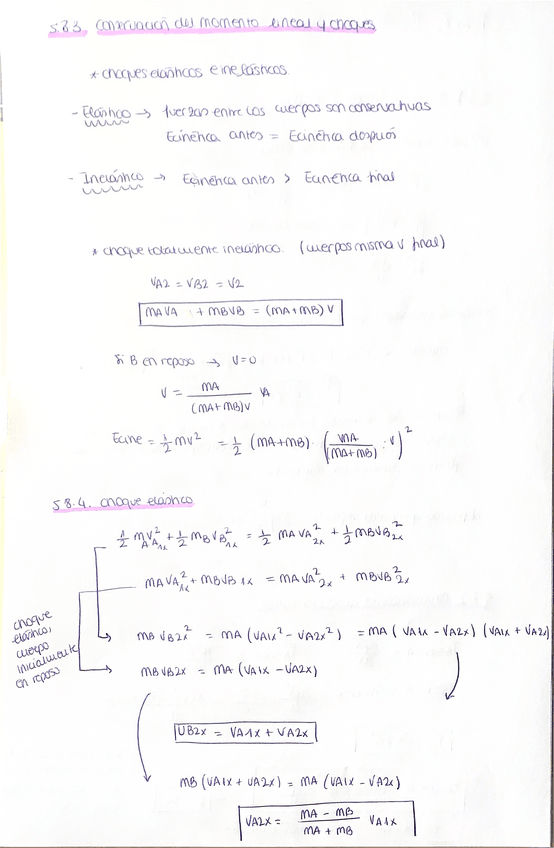 5.8.3. Conservación del momento lineal y choques
* choques elásticos e inelásticos.
- Elástico → fuerzas entre los cuerpos son conservativas
Ecinética antes = Ecinética después
- Inelástico → Ecinética antes > Ecinética final
* choque totalmente inelástico. (cuerpos misma v final)
VA2 = VB2 = V2
mAVA + mBVB = (mA+mB) V
Si B en reposo → V=0
V = mA / (mA+mB)V VA
Ecine = 1/2 mv² = 1/2 (mA+mB) · (mA / (mA+mB) · V)²
5.8.4. choque elástico
1/2 mAVA1x² + 1/2 mBVB1x² = 1/2 mAVA2x² + 1/2 mBVB2x²
mAVA1x² + mBVB1x = mAVA2x² + mBVB2x²
choque elástico, cuerpo inicialmente en reposo
mBVB2x² = mA (VA1x² - VA2x²) = mA (VA1x - VA2x) (VA1x + VA2x)
mBVB2x = mA (VA1x - VA2x)
VB2x = VA1x + VA2x
mB (VA1x + VA2x) = mA (VA1x - VA2x)
VA2x = mA - mB / mA + mB VA1x